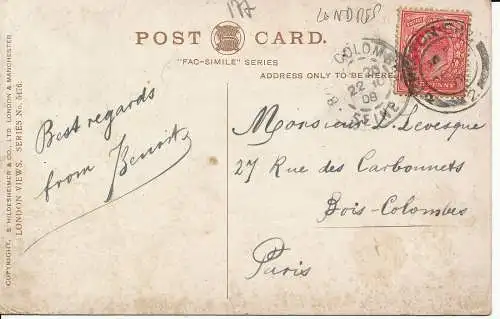 177
LONDRES
POST CARD.
"FAC-SIMILE" SERIES
ADDRESS ONLY TO BE HERE
COLOMB
22
08
SEINE
PENNY
COPYRIGHT. S. HILDESHEIMER & CO., LTD. LONDON & MANCHESTER
LONDON VIEWS. SERIES No.
Best regards
from Benoit
Monsieur L. Levesque
27 Rue des Carbonnets
Bois-Colombes
Paris